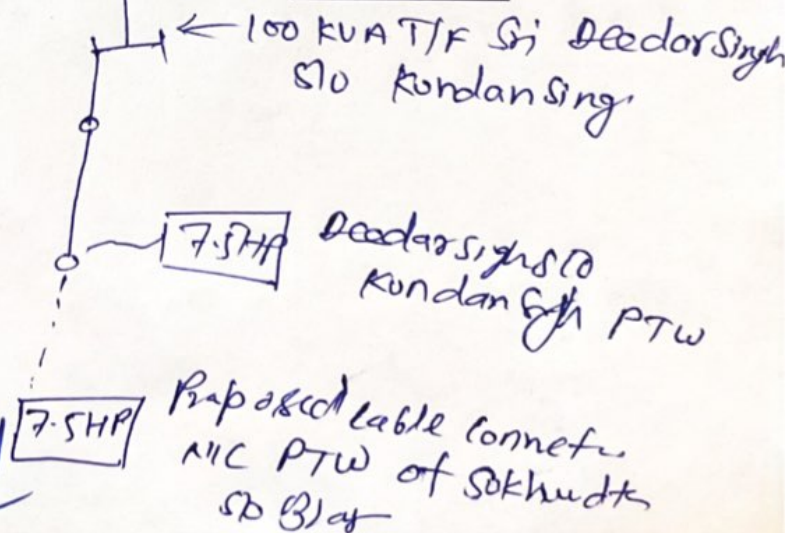 ← 100 KVA T/F Sri Deedar Singh
S/o Kundan Sing.
7.5HP
Deedar Sigh S/o
Kundan Sgh PTW
7.5HP
Proposed cable connetn
N/C PTW of
S/o